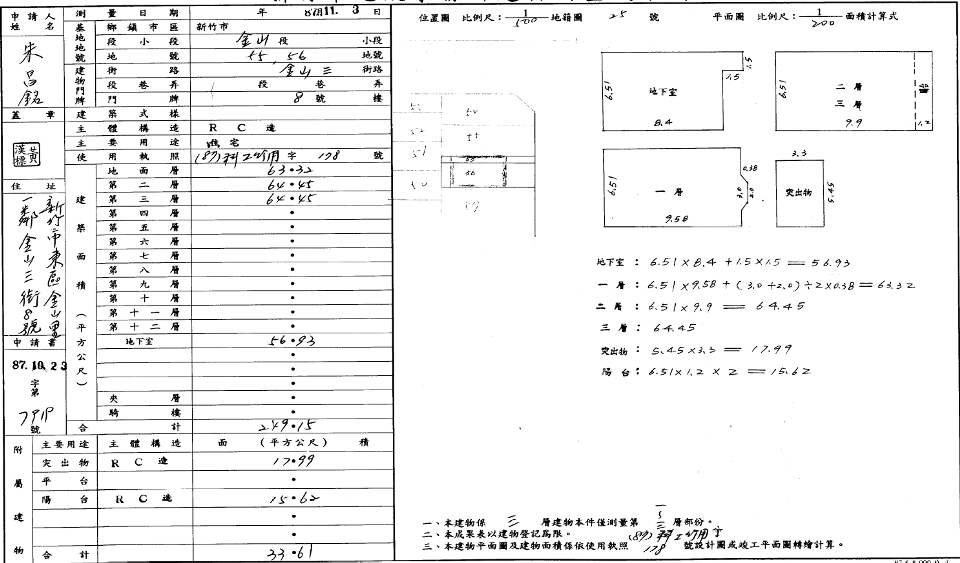 申請人姓名
朱昌銘
蓋章
黃漢標
住址
新竹市東區金山里
一鄰金山三街8號
申請書
87.10.23
字第
號
測量日期 年 87. 11. 3 日
基地地號 鄉鎮市區 新竹市
段小段 金山段 小段
地號 55、56 地號
建物門牌 街路 金山三 街路
段巷弄 段巷弄
門牌 8號 樓
建築式樣
主體構造 RC造
主要用途 住宅
使用執照 字 178 號
建築面積(平方公尺)
地面層 63.32
第二層 64.45
第三層 64.45
第四層 .
第五層 .
第六層 .
第七層 .
第八層 .
第九層 .
第十層 .
第十一層 .
第十二層 .
地下室 56.93
夾層 .
騎樓 .
合計 249.15
附屬建物
主要用途 主體構造 面(平方公尺)積
突出物 RC造 17.99
平台 .
陽台 RC造 15.62
合計 33.61
位置圖 比例尺:1/500 地籍圖 25 號 平面圖 比例尺:1/200 面積計算式
54
55
56
6.51
地下室
8.4
1.5
1.5
6.51
二層
三層
9.9
1.2
6.51
一層
9.58
0.38
3.0
2.0
3.3
突出物
5.45
地下室: 6.51×8.4+1.5×1.5=56.93
一層: 6.51×9.58+(3.0+2.0)÷2×0.38=63.32
二層: 6.51×9.9=64.45
三層: 64.45
突出物: 5.45×3.3=17.99
陽台: 6.51×1.2×2=15.62
一、本建物係 三 層建物本件僅測量第 一~三 層部份。
二、本成果表以建物登記為限。
三、本建物平面圖及建物面積係依使用執照 178 號設計圖或竣工平面圖轉繪計算。